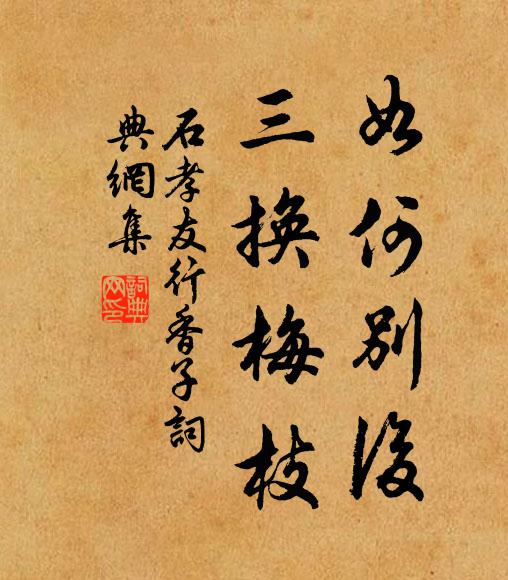 如何別後
三換梅枝
石孝友行香子詞
典網集
詞典網印